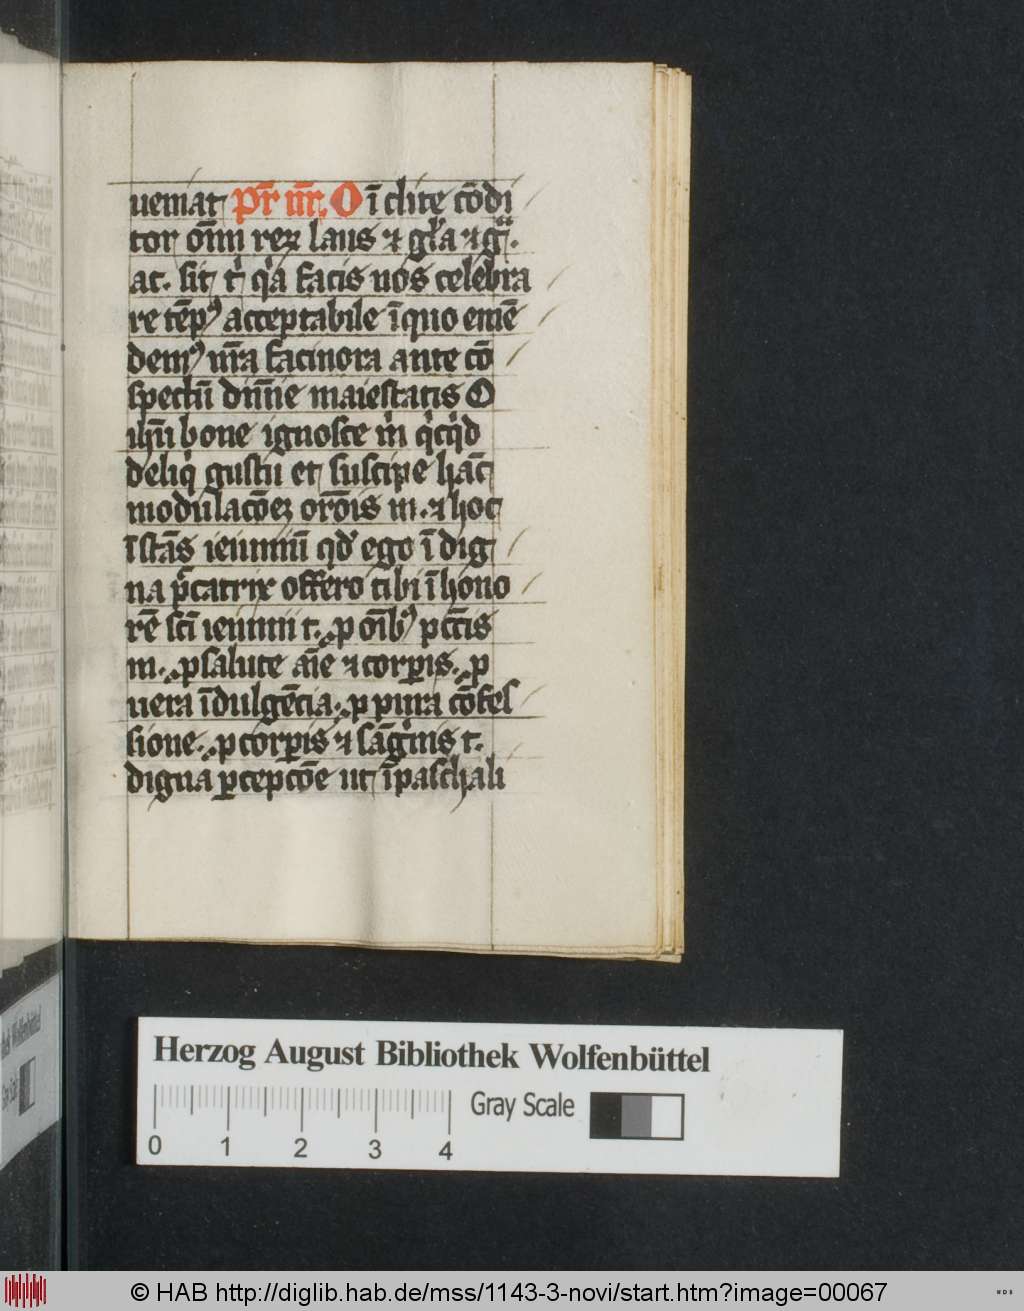 ueniat Pr̄ nr̄. O ī clite cōdi
tor oīm reꝝ laus ⁊ gl̄a ⁊ gͣ.
ac. sit tͥ qͥa facis nos celebra
re tēpꝰ acceptabile ī quo emē
demꝰ nr̄a facinora ante cō
spectū diuīe maiestatis O
ihū bone ignosce mͥ qͥcqͥd
deliqͥ gustu et suscipe hāc
modulacōeꝫ orōis m. ⁊ hoc
īstās ieiuniū qđ ego ī dig
na pͨcatrix offero tibi ī hono
rē sc̄i ieiunii t. ꝓ oībꝰ pc̄c̄is
m. ꝓ salute aīe ⁊ corꝑis. ꝓ
uera īdulgēcia. ꝓ pura cōfes
sione. ꝓ corꝑis ⁊ sāgͥnis t.
digna ꝑcepcōe ut ī paschali
Herzog August Bibliothek Wolfenbüttel
Gray Scale
0 1 2 3 4
© HAB http://diglib.hab.de/mss/1143-3-novi/start.htm?image=00067